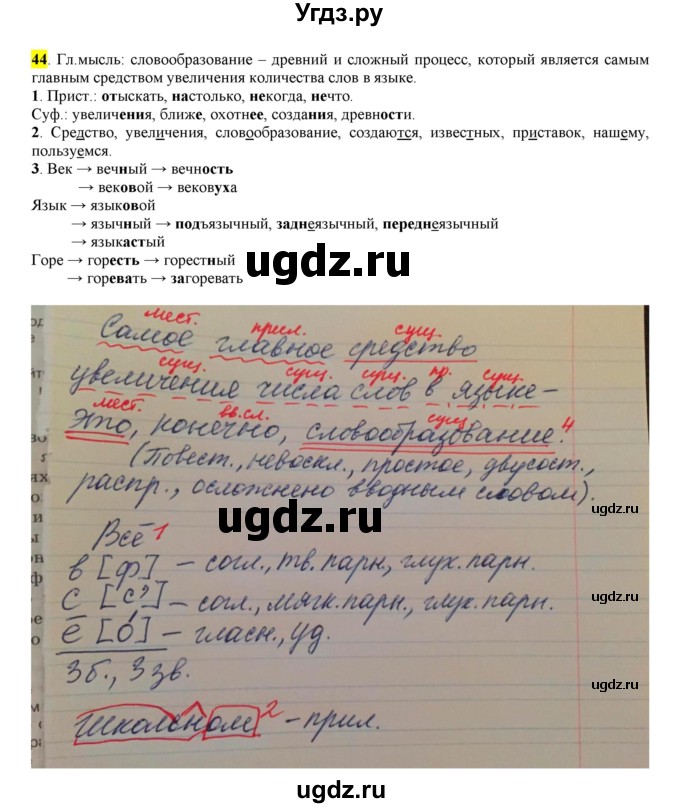 Угдз.ру
44. Гл.мысль: словообразование – древний и сложный процесс, который является самым
главным средством увеличения количества слов в языке.
1. Прист.: отыскать, настолько, некогда, нечто.
Суф.: увеличения, ближе, охотнее, создания, древности.
2. Средство, увеличения, словообразование, создаются, известных, приставок, нашему,
пользуемся.
3. Век → вечный → вечность
→ вековой → вековуха
Язык → языковой
→ язычный → подъязычный, заднеязычный, переднеязычный
→ языкастый
Горе → горесть → горестный
→ горевать → загоревать
ugdz.ru
ugdz.ru
мест. прил. сущ.
Самое главное средство
сущ. сущ. сущ. пр. сущ.
увеличения числа слов в языке –
мест. вв.сл. сущ.
это, конечно, словообразование.4
(Повест., невоскл., простое, двусост.,
распр., осложнено вводным словом).
ugdz.ru
ugdz.ru
Всё1
в [ф] – согл., тв.парн., глух.парн.
с [с'] – согл., мягк.парн., глух.парн.
ё [о́] – гласн., уд.
3б., 3 зв.
ugdz.ru
школьном2 – прил.
ugdz.ru